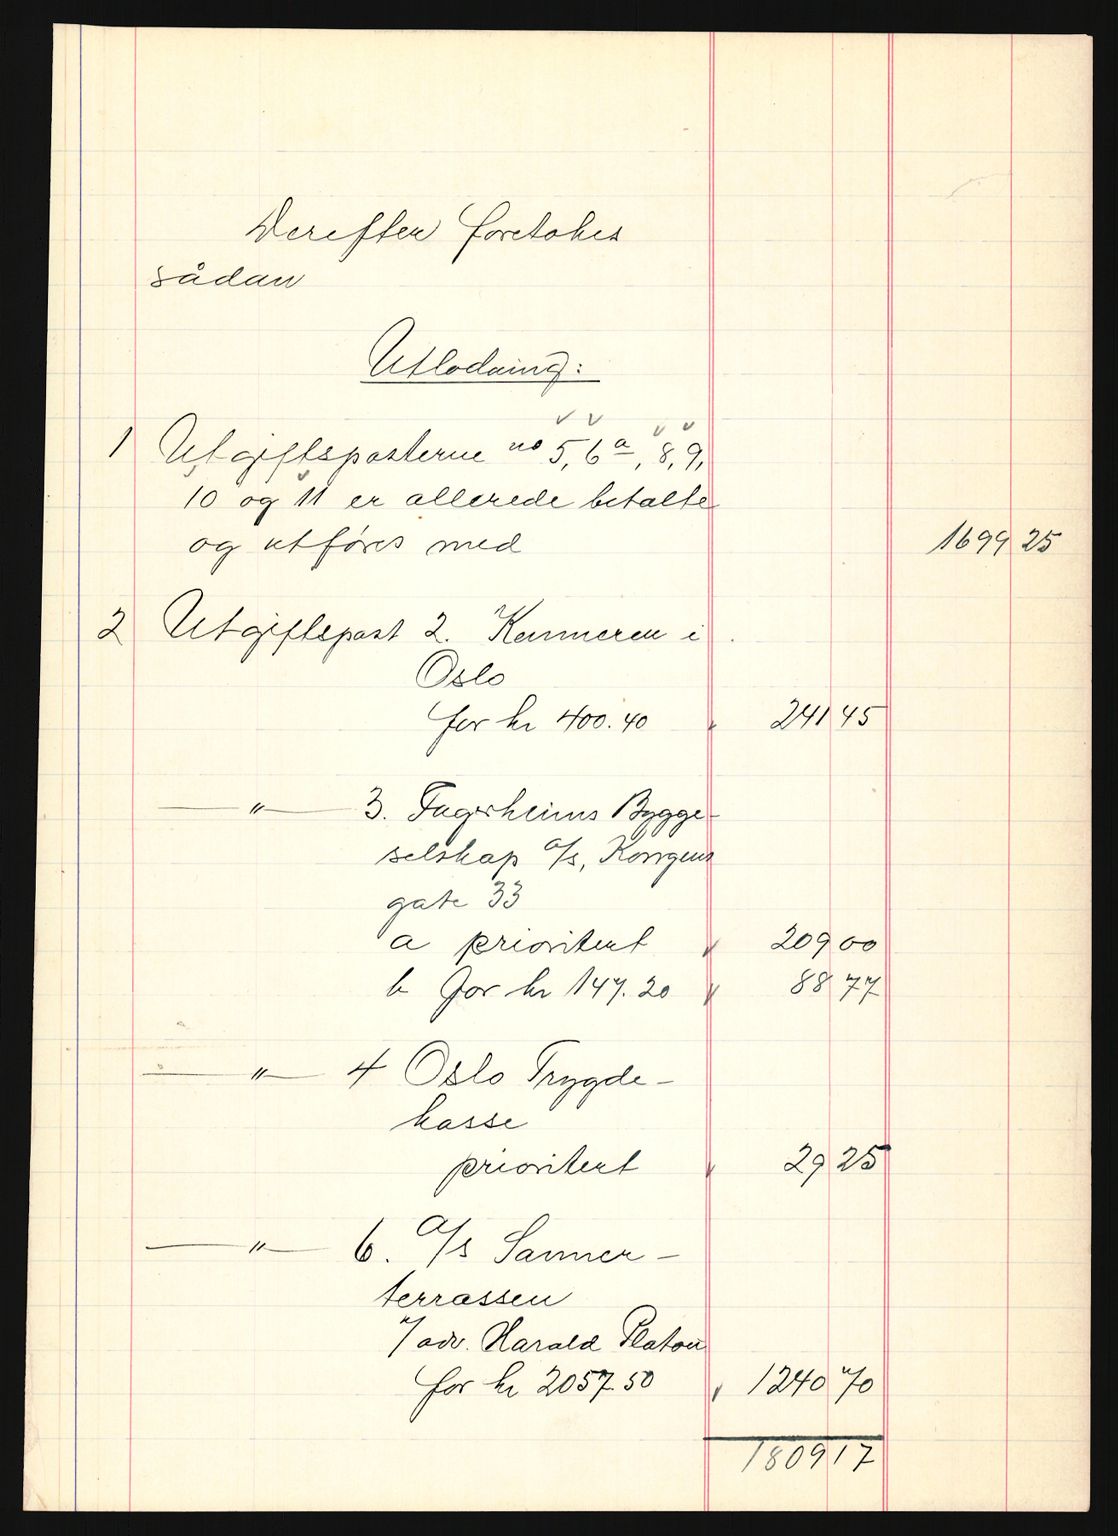 Derefter foretokes
sådan
Utlodning:
1 Utgiftsposterne no 5, 6a, 8, 9,
10 og 11 er allerede betalte
og utføres med 1699 25
2 Utgiftspost 2. Kemneren i
Oslo
for kr 400.40 241 45
—„— 3. Fagerheims Bygge-
selskap a/s, Kongens
gate 33
a prioritert 209 00
b for kr 147.20 88 77
—„— 4 Oslo Trygde-
kasse
prioritert 29 25
—„— 6. A/s Sanner-
terrassen
v/ adv. Harald Platou
for kr 2057.50 1240 70
1809 17